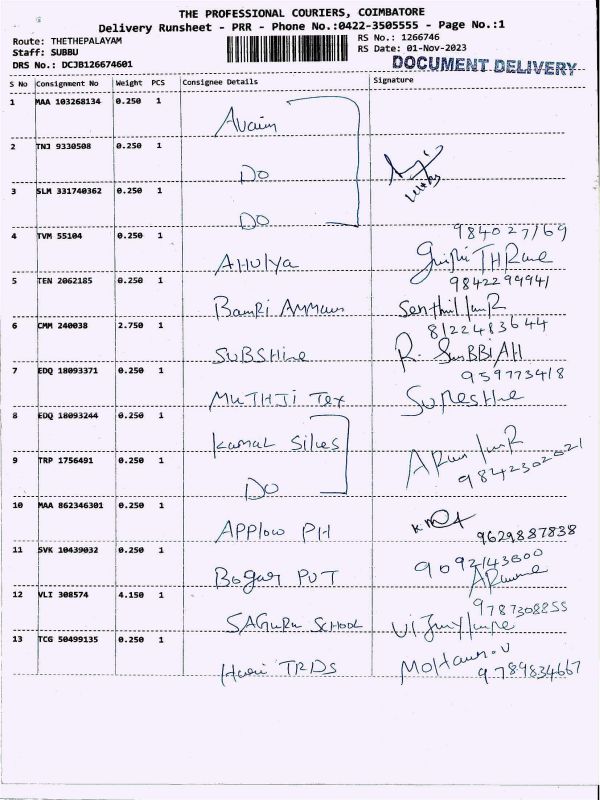 THE PROFESSIONAL COURIERS, COIMBATORE
Delivery Runsheet - PRR - Phone No.:0422-3505555 - Page No.:1
Route: THETHEPALAYAM
Staff: SUBBU
DRS No.: DCJB126674601
RS No.: 1266746
RS Date: 01-Nov-2023
DOCUMENT DELIVERY
S No Consignment No Weight PCS Consignee Details Signature
1 MAA 103268134 0.250 1
2 TNJ 9330508 0.250 1 Do
3 SLM 331740362 0.250 1 Do
4 TVM 55104 0.250 1 AHUlya 984027169
5 TEN 2062185 0.250 1 9842299941
6 CMM 240038 2.750 1 SUBSHine 8122483644
R. SuBBIAH
7 EDQ 18093371 0.250 1 MUTHJI Tex 959773418
SuResHne
8 EDQ 18093244 0.250 1 Kamal Silks
9 TRP 1756491 0.250 1 Do 9842302021
10 MAA 862346301 0.250 1 APPlow PH 9629887838
11 SVK 10439032 0.250 1 Bogar PVT 9092143600
12 VLI 308574 4.150 1 SAGuRu School 9787308255
13 TCG 50499135 0.250 1 Hari TRDs 9789834667